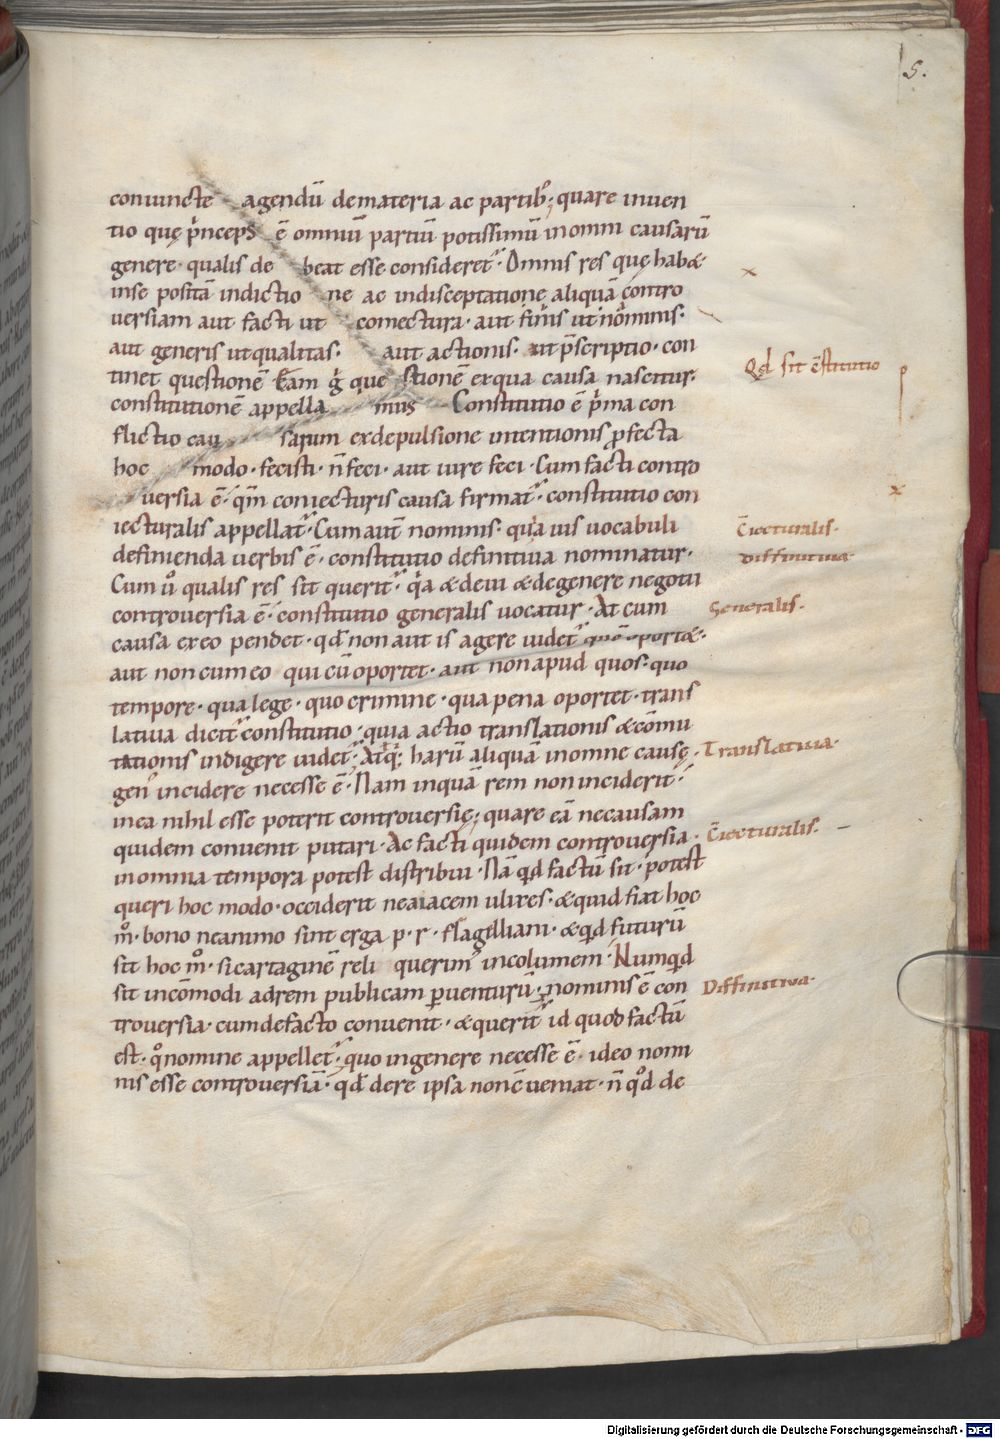 5.
coniuncte agendū de materia ac partib; quare inuen
tio que p̄nceps ē omniū partiū potissimū in omni causarū
genere · qualis de beat esse consideret͛ · Omnis res quę habæ
in se positā in dictio ne ac in disceptatione aliquā contro
uersiam aut facti ut coniectura · aut finis ut nominis ·
aut generis ut qualitas · aut actionis · ut p̄scriptio · con
tinet questionē Eam g̊ que stionē ex qua causa nascitur ·
constitutionē appella mus Constitutio ē p̄ma con
Qd sit c̄stitutio
flictio cau sarum ex depulsione intentionis profecta
hoc modo · fecisti · n̄ feci · aut iure feci · Cum facti contro
uersia ē · qm̄ coniecturis causa firmat͛ · constitutio con
iecturalis appellat͛ · Cum aut̄ nominis · quia uis uocabuli
C̄iecturalis ·
definienda uerbis ē · constitutio definitiua nominatur ·
Diffinitiua
Cum ů qualis res sit querit͛ · qa & de ui & de genere negotii
controuersia ē · constitutio generalis uocatur · At cum
Generalis ·
causa ex eo pendet · qd̄ non aut is agere uidet͛ quē oportæ ·
aut non cum eo qui cū oportet · aut non apud quos · quo
tempore · qua lege · quo crimine · qua pena oportet · trans
latiua dicit͛ constitutio · quia actio translationis & cōmu
tationis indigere uidet͛ · Atq; harū aliquā in omne causę
Translatiua
gen incidere necesse ē · Nam in quā rem non inciderit
in ea nihil esse poterit controuersię; quare eā ne causam
quidem conuenit putari · Ac facti quidem controuersia ·
C̄iecturalis ·
in omnia tempora potest distribui · Nā qd factū sit · potest
queri hoc modo · occiderit ne aiacem ulixes · & quid fiat hoc
m̊ · bono ne animo sint erga p · r · flagelliani · & qd futurū
sit hoc m̊ · si cartaginē reli querim͛ incolumem · Numqd
sit incōmodi ad rem publicam peruenturū · nominis ē con
Diffinitiua
trouersia · cum de facto conuenit · & querit͛ id quod factū
est · qo nomine appellet͛ · quo in genere necesse ē · ideo nomi
nis esse controuersiā · qd̄ de re ipsa non cēueniat · n̄ qd de
Digitalisierung gefördert durch die Deutsche Forschungsgemeinschaft - DFG